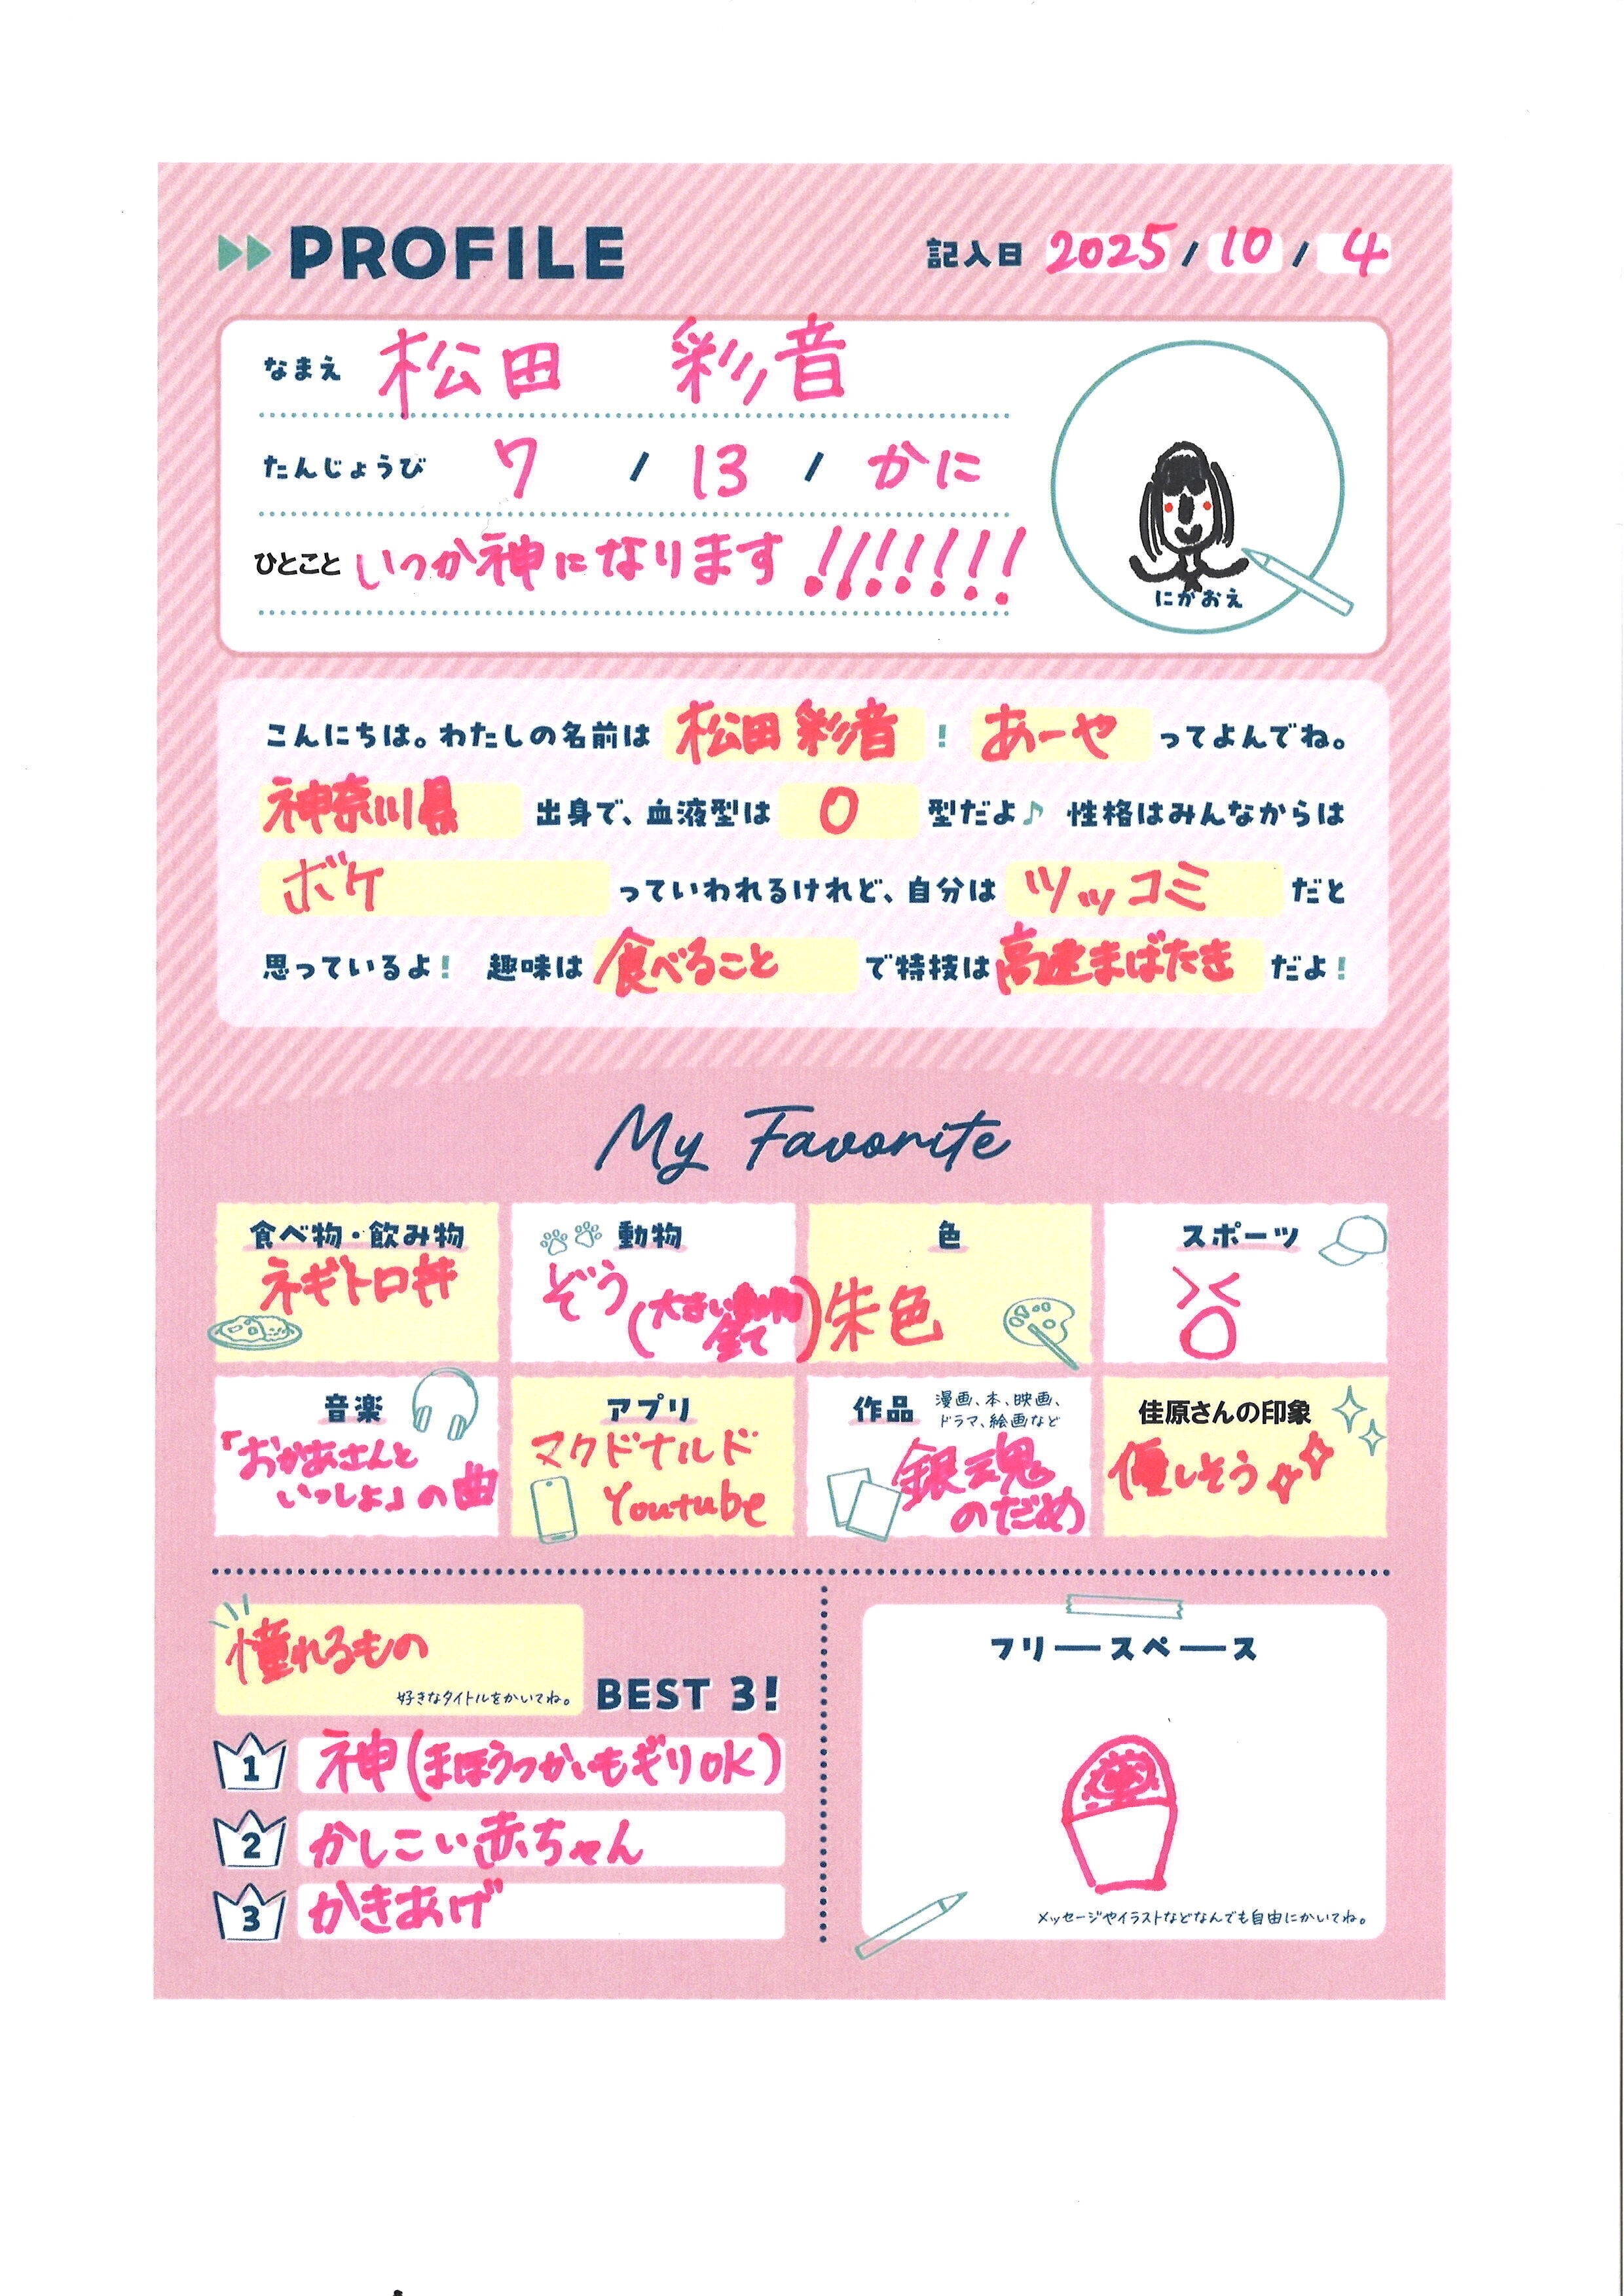 PROFILE
記入日 2025 / 10 / 4
なまえ 松田 彩音
たんじょうび 7 / 13 / かに
ひとこと いつか神になります!!!!!!!
にがおえ
こんにちは。わたしの名前は 松田 彩音 ! あーや ってよんでね。
神奈川県 出身で、血液型は O 型だよ♪ 性格はみんなからは
ボケ っていわれるけれど、自分は ツッコミ だと
思っているよ! 趣味は 食べること で特技は 高速まばたき だよ!
My Favorite
食べ物・飲み物
ネギトロ丼
動物
ぞう
(大きい動物
全て)
色
朱色
スポーツ
音楽
「おかあさんと
いっしょ」の曲
アプリ
マクドナルド
Youtube
作品 漫画、本、映画、
ドラマ、絵画など
銀魂
のだめ
佳原さんの印象
優しそう
憧れるもの
好きなタイトルをかいてね。
BEST 3!
1 神(まほうつかいもギリOK)
2 かしこい赤ちゃん
3 かきあげ
フリースペース
メッセージやイラストなどなんでも自由にかいてね。